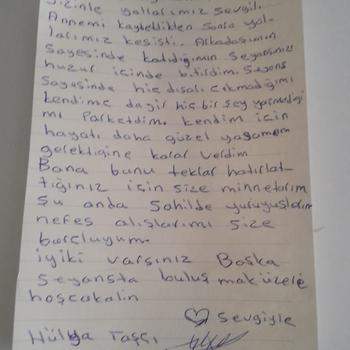 Sizinle yollarımız sevgili
Annemi kaybettikten sonra yol-
larımız kesişti. Arkadaşımın
sayesinde katıldığım seyansınızı
huzur içinde bitirdim. Seyans
sayesinde hiç dışarı çıkmadığımı
kendime dayir hiç bir şey yapmadığı
mı farketdim. kendim için
hayatı daha güzel yaşamam
gerektigine karar verdim
Bana bunu tekrar hatırlat-
tığınız için size minnetarım
şu anda sahilde yürüyüşlarım
nefes alışlarımı size
borçluyum.
iyiki varsınız Başka
seyansta buluşmak üzere
hoşcakalın
Sevgiyle
Hülya Taşçı